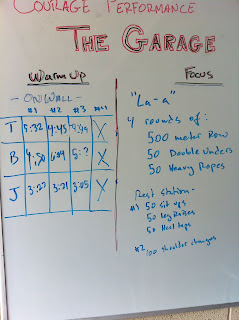 COURAGE PERFORMANCE
THE GARAGE
Warm Up
- ON WALL -
#1 #2 #3
T 5:32 4:45 X
B X
J 3:27 3:21 X
Focus
"La-a"
4 rounds of:
500 meter Row
50 Double Unders
50 Heavy Ropes
Rest station -
#1 50 sit ups
50 Leg Raises
50 Heel taps
#2 100 shoulder changes